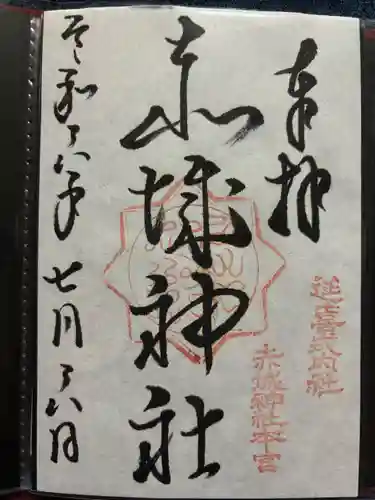 奉拝
延喜式内社
赤城神社本宮
赤城神社
令和八年七月八日